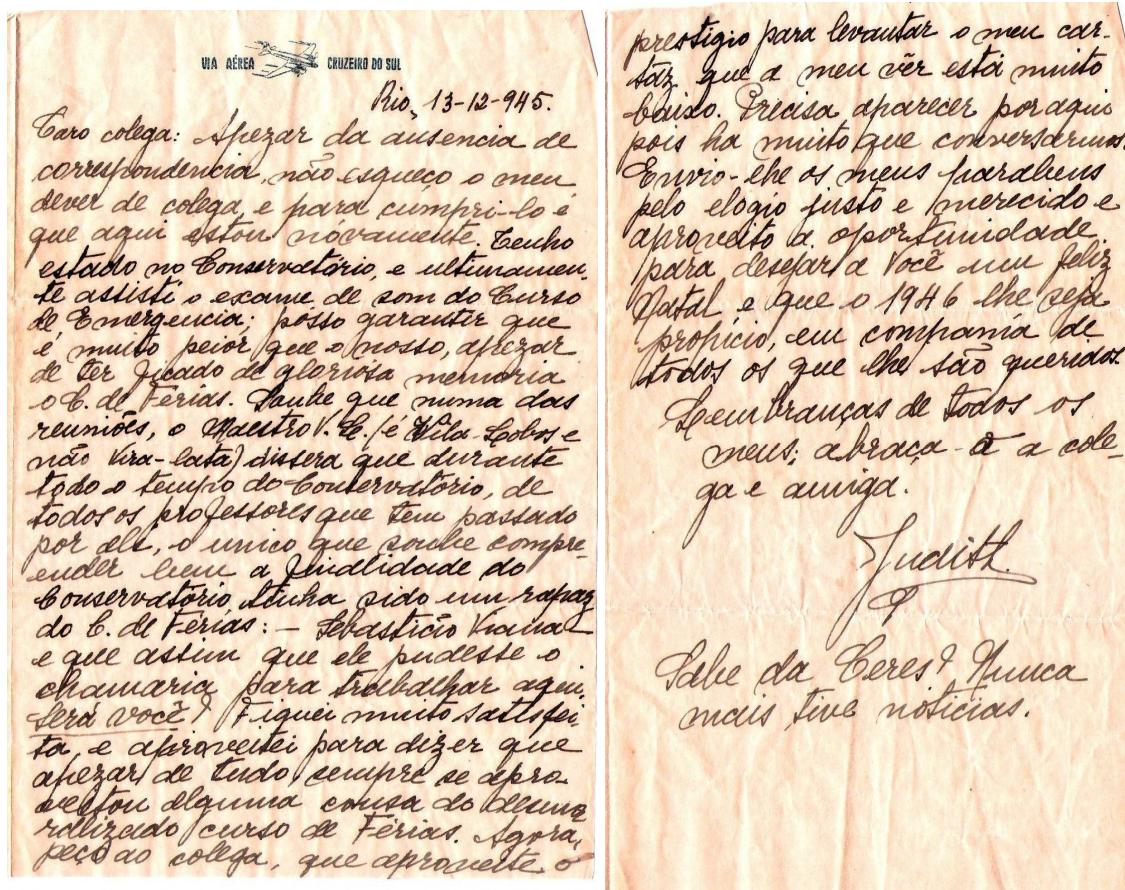 VIA AÉREA CRUZEIRO DO SUL
Rio, 13-12-945.
Caro colega: Apezar da ausencia de
correspondencia, não esqueço o meu
dever de colega, e para cumpri-lo é
que aqui estou novamente. Tenho
estado no Conservatório, e ultimamen-
te assisti o exame de som do Curso
de Emergencia; posso garantir que
é muito peior que o nosso, apezar
de ter ficado de gloriosa memoria
o C. de Férias. Soube que numa das
reuniões, o Maestro V. L. (é Vila-Lobos e
não Vira-lata) dissera que durante
todo o tempo do Conservatório, de
todos os professores que tem passado
por ele, o unico que soube compre-
ender bem a finalidade do
Conservatório tinha sido um rapaz
do C. de Férias: - Sebastião Viana
e que assim que ele pudesse o
chamaria para trabalhar aqui.
Será você? Fiquei muito satisfei-
ta, e aproveitei para dizer que
apezar de tudo sempre se apro
veitou alguma cousa do desmo
ralizado curso de Férias. Agora,
peço ao colega, que aproveite o
prestigio para levantar o meu car-
taz que a meu vêr está muito
baixo. Precisa aparecer por aqui
pois ha muito que conversarmos.
Envio-lhe os meus parabens
pelo elogio justo e merecido e
aproveito a oportunidade
para desejar a Você um feliz
Natal e que o 1946 lhe seja
propicio, em compania de
todos os que lhe são queridos.
Lembranças de todos os
meus; abraça-o a cole-
ga e amiga.
Judith
Sabe da Ceres? Nunca
mais tive noticias.